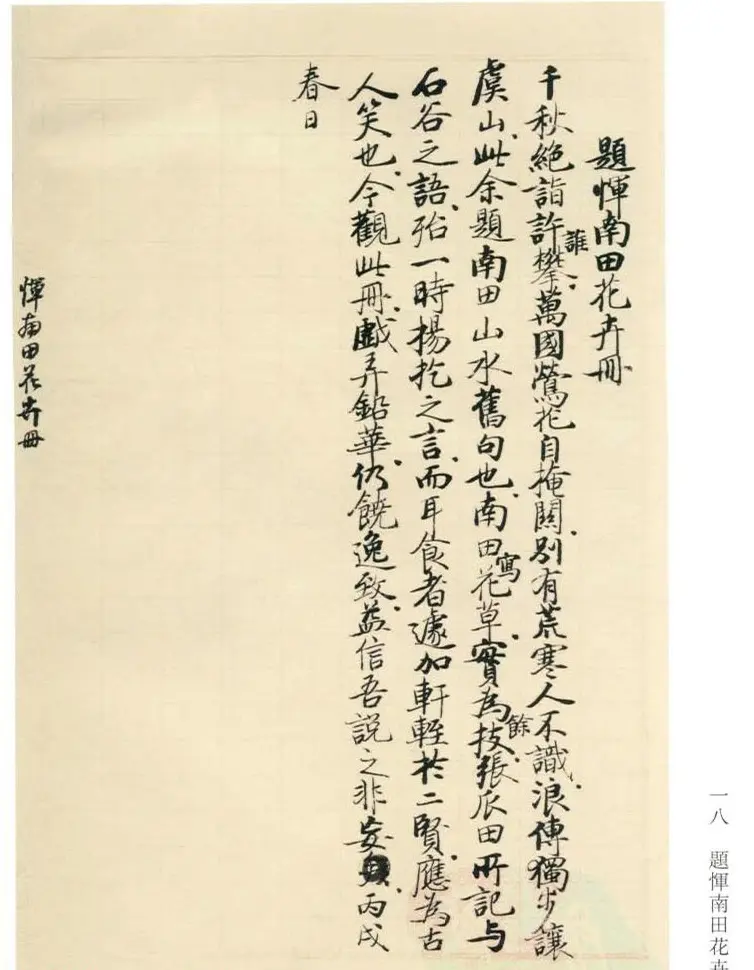 題惲南田花卉冊
千秋絕詣許誰攀萬國鶯花自掩關別有荒寒人不識浪傳獨步讓
虞山此余題南田山水舊句也南田寫花草實為餘技張瓜田所記与
石谷之語殆一時揚抱之言而耳食者遽加軒輊於二賢應為古
人笑也今觀此冊戲弄鉛華仍饒逸致益信吾說之非妄丙戌
春日
惲南田花卉冊
一八 題惲南田花卉